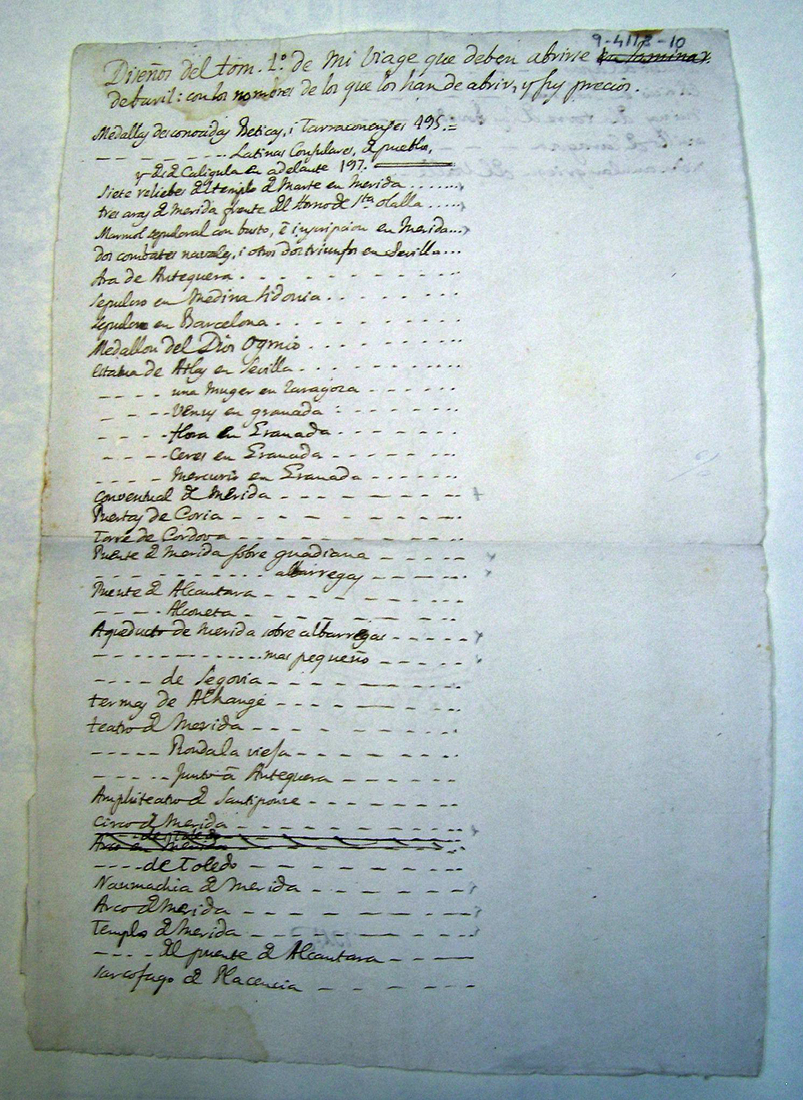 9-4118-10
Diseños del tom. 1º. de Mi Viage que deben abrirse en laminas
de buril: con los nombres de los que los han de abrir, y sus precios.
Medallas desconocidas Beticas, i Tarraconenses 495.=
_ _ _ _ _ _ ........ Latinas Consulares, d pueblos,
y desd Caligula en adelante 197.
Siete reliebes dl templo d Marte en Merida .......
tres aras d Merida frente dl Horno de Sta olalla .....
Marmol sepulcral con busto, è inscripcion en Merida...
Dos combates navales, i otros dos triunfos en Sevilla...
Ara de Antequera. . . . . . . . . . .
Sepulcro en Medina Sidonia. . . . . . .
Sepulcro en Barcelona. . . . . . . . . .
Medallon del Dios Ogmio. . . . . . . .
Estatua de Atys en Sevilla. . . . . . . .
_ _ _ _ . . una Muger en Zaragoza . . . . . .
_ _ _ _ Venus en granada : . . . . . . .
_ _ _ _ flora en Granada . . . . . . .
_ _ _ _ Ceres en Granada . . . . . . .
_ _ _ _ Mercurio en Granada . . . . . .
Conventual d Merida _ _ _ _ _ _ _ +
Puertas de Coria _ _ _ _ _ _ _ _
Torre de Cordova _ _ _ _ _ _ _ _
Puente d Merida sobre guadiana _ _ _ _ x
_ _ _ . . . . . . . . . . albarregas _ _ _ _ x
Puente d Alcantara _ _ _ _ _ _ _ _
_ _ _ _ Alconeta _ _ _ _ _ _ _ _
Aqueducto de Merida sobre albarregas _ _ _ _ x
_ _ _ _ _ .............. mas pequeño _ _ _ _ x
_ _ _ _ de Segovia _ _ _ _ _ _ _
termas de Alhange _ _ _ _ _ _ _
teatro d Merida _ _ _ _ _ _ _ _
_ _ _ _ _ Ronda la vieja _ _ _ _ _ _
_ _ _ _ _ Junto à Antequera _ _ _ _ _
Amphiteatro d Santiponze _ _ _ _ _ _
Circo d Merida _ _ _ _ _ _ _ _ x
de Toledo
Arco en Merida
_ _ _ _ de Toledo _ _ _ _ _ _ _
Naumachia d Merida _ _ _ _ _ _ _
Arco d Merida _ _ _ _ _ _ _ _
Templo d Merida _ _ _ _ _ _ _ _
_ _ _ _ dl puente d Alcantara _ _ _ _
Sarcofago d Placencia _ _ _ _ _ _ _